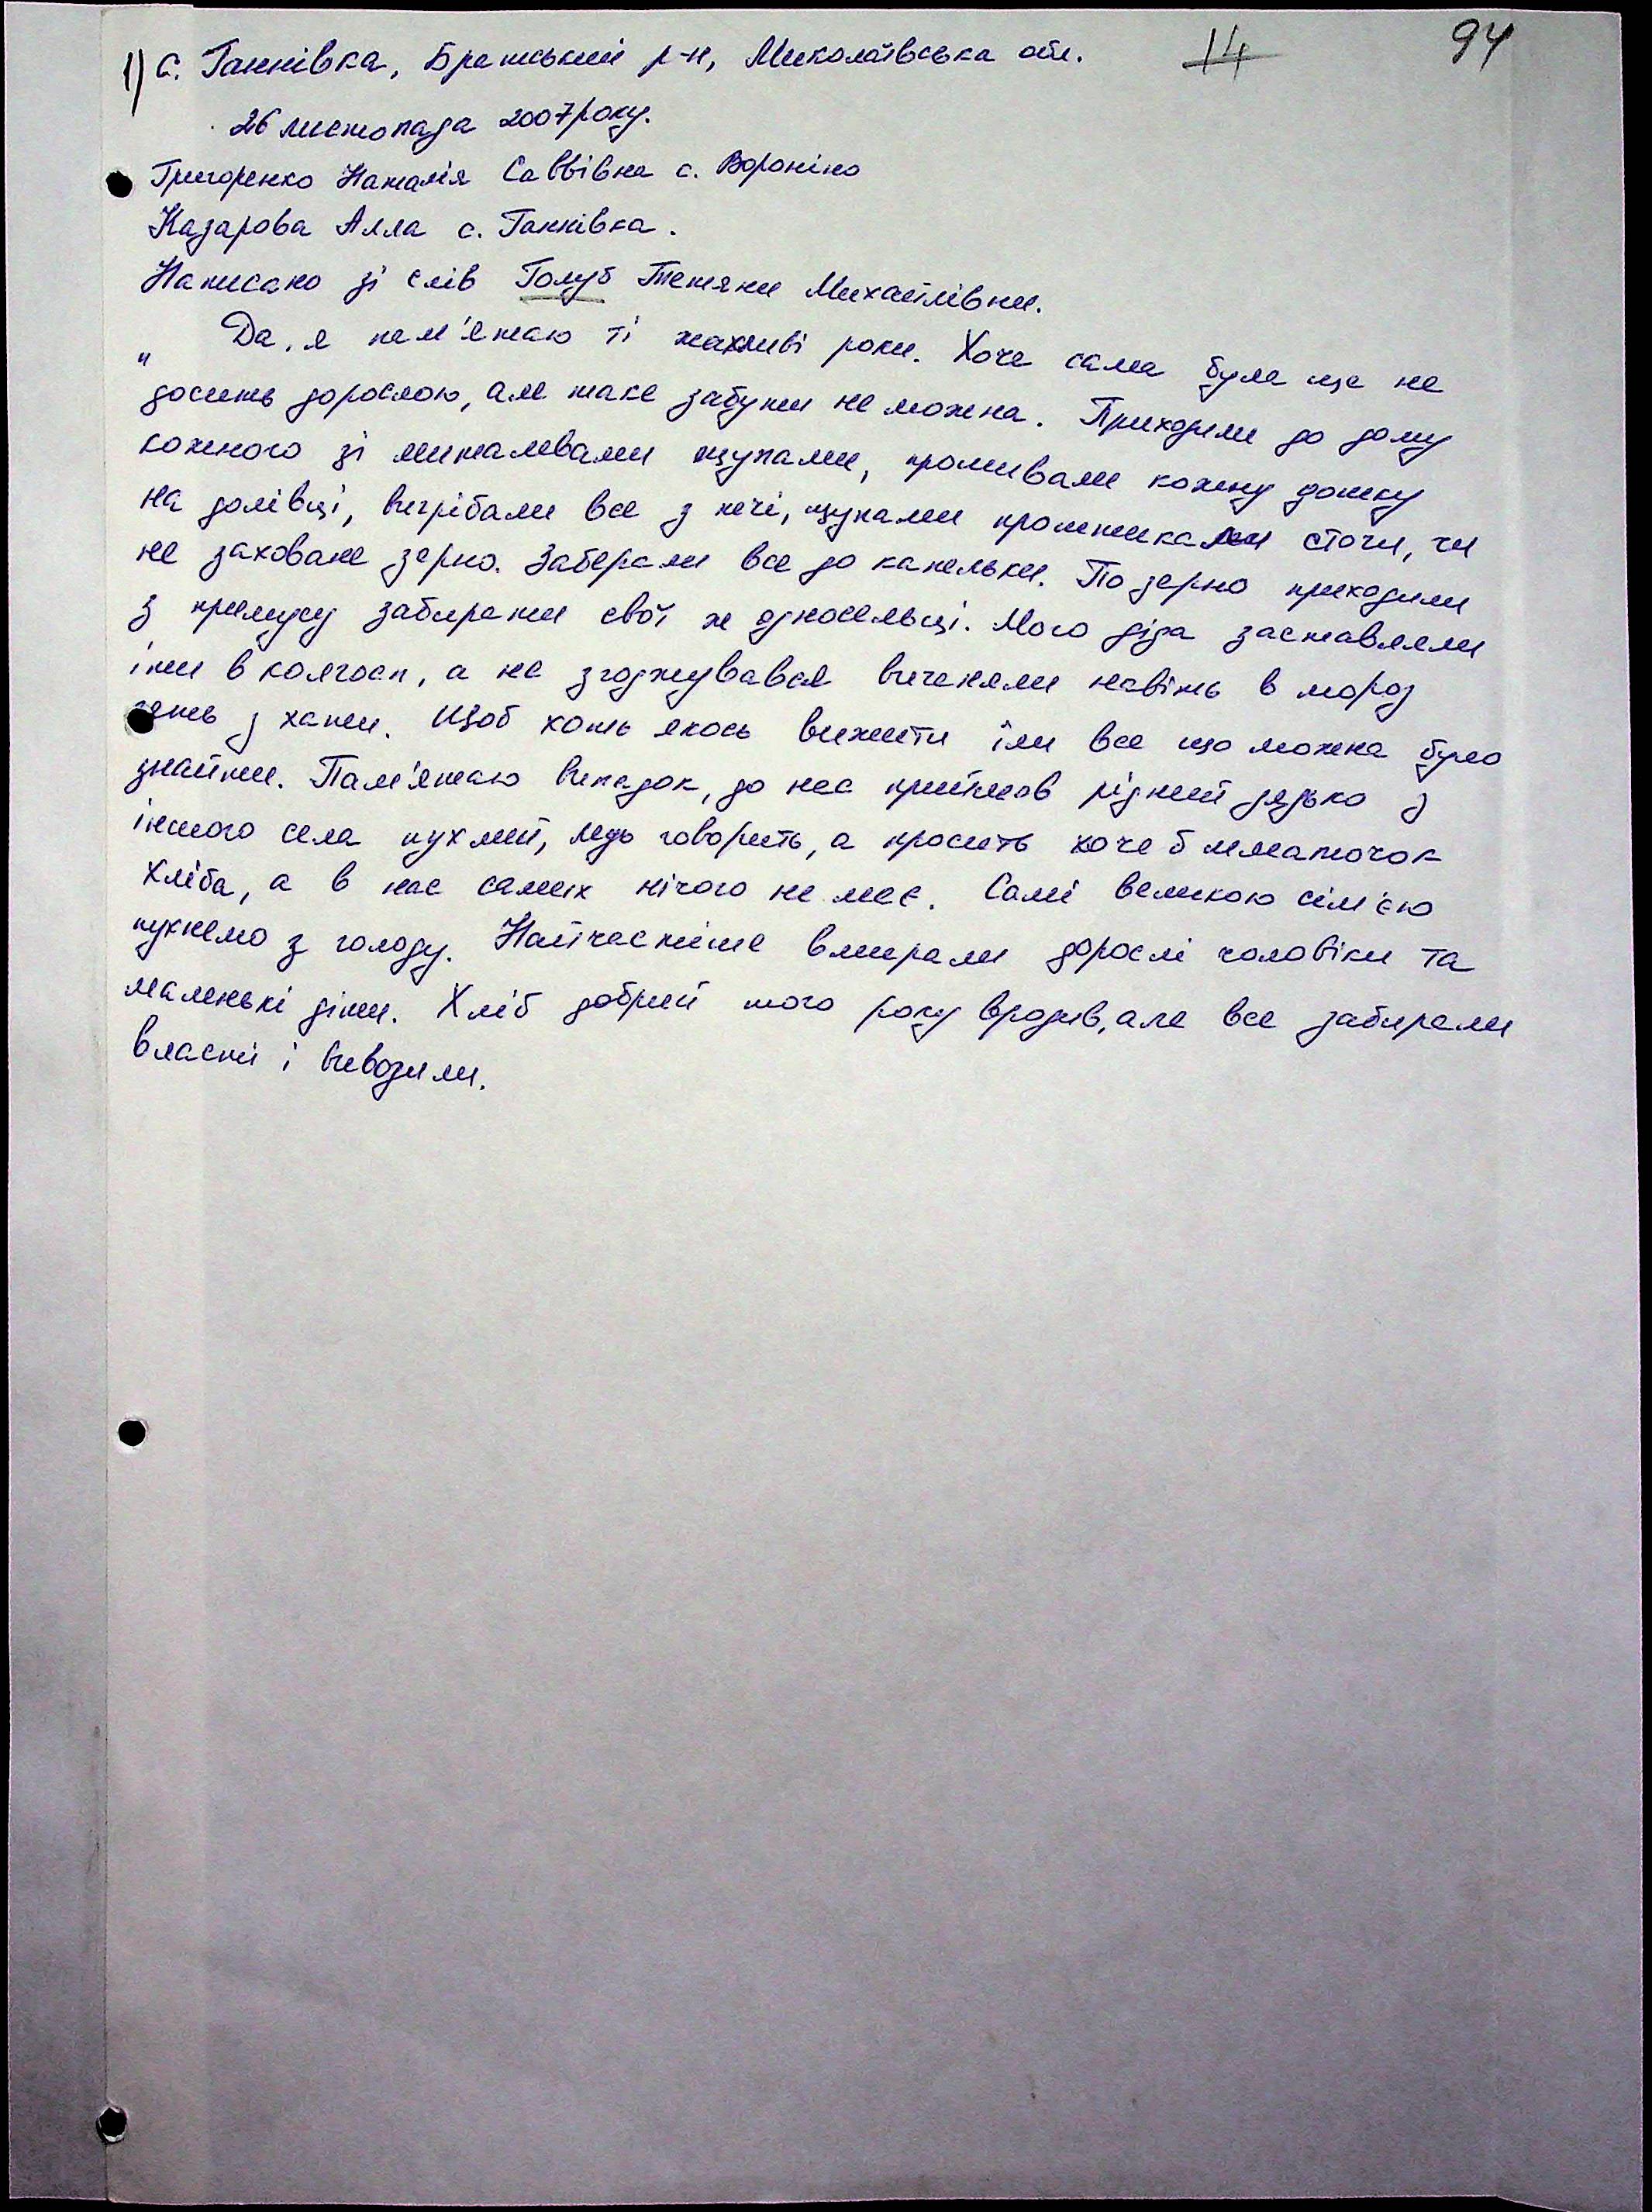 1) с. Ганнівка, Братський р-н, Миколаївська обл. 14 94
26 листопада 2007 року.
Григоренко Наталія Саввівна с. Вороніно
Казарова Алла с. Ганнівка.
Написано зі слів Голуб Тетяни Михайлівни.
„ Да, я пам'ятаю ті жахливі роки. Хоча сама була ще не
досить дорослою, але таке забути не можна. Приходили до дому
кожного зі металевами щупами, прошивали кожну дошку
на долівці, вигрібали все з печі, щупами проштикали сточи, чи
не заховане зерно. Заберали все до капельки. По зерно приходили
з примусу забирати свої ж односельці. Мого діда заставляли
іти в колгосп, а не згоджувався виганяли навіть в мороз
геть з хати. Щоб хоть якось вижити їли все що можна було
знайти. Пам'ятаю випадок, до нас прийшов рідний дядько з
іншого села пухлий, ледь говорить, а просить хоче б шматочок
хліба, а в нас самих нічого не має. Самі великою сім'єю
пухнемо з голоду. Найчастіше вмирали дорослі чоловіки та
маленькі діти. Хліб добрий того року вродив, але все забирали
власті і вивозили.